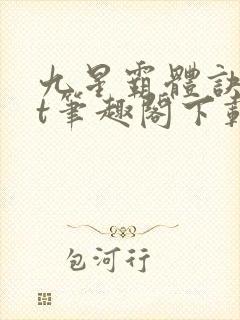 九星霸體訣
t筆趣閣下載
包河行